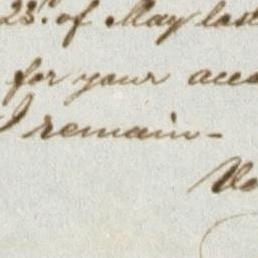 23d. of May last
for your acco
I remain -